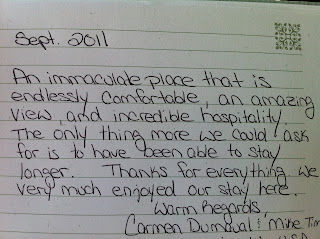 Sept. 2011
An immaculate place that is
endlessly comfortable, an amazing
view, and incredible hospitality.
The only thing more we could ask
for is to have been able to stay
longer. Thanks for everything, we
very much enjoyed our stay here.
Warm Regards,
Carmen & Mike